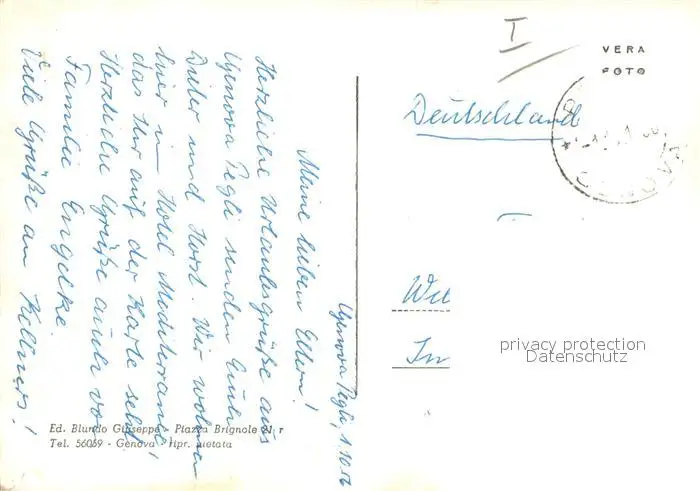 Genova Pegli, 1.10.56
Meine lieben Eltern!
Herzliche Urlaubsgrüße aus
Genova Pegli senden Euch
Dieter und Horst. Wir wohnen
hier im Hotel Mediterranee,
das Ihr auf der Karte seht.
Herzliche Grüße auch von
Familie Engelke.
Viele Grüße an Kellners!
I
VERA
FOTO
Deutschland
GENOVA
Wit
In
privacy protection
Datenschutz
Ed. Blundo Giuseppe - Piazza Brignole r
Tel. 56059 - Genova - Ripr. vietata